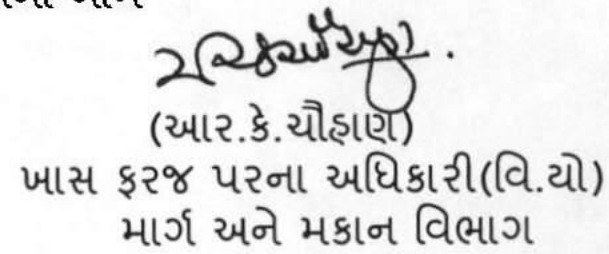 (આર.કે.ચૌહાણ)
ખાસ ફરજ પરના અધિકારી(વિ.યો)
માર્ગ અને મકાન વિભાગ